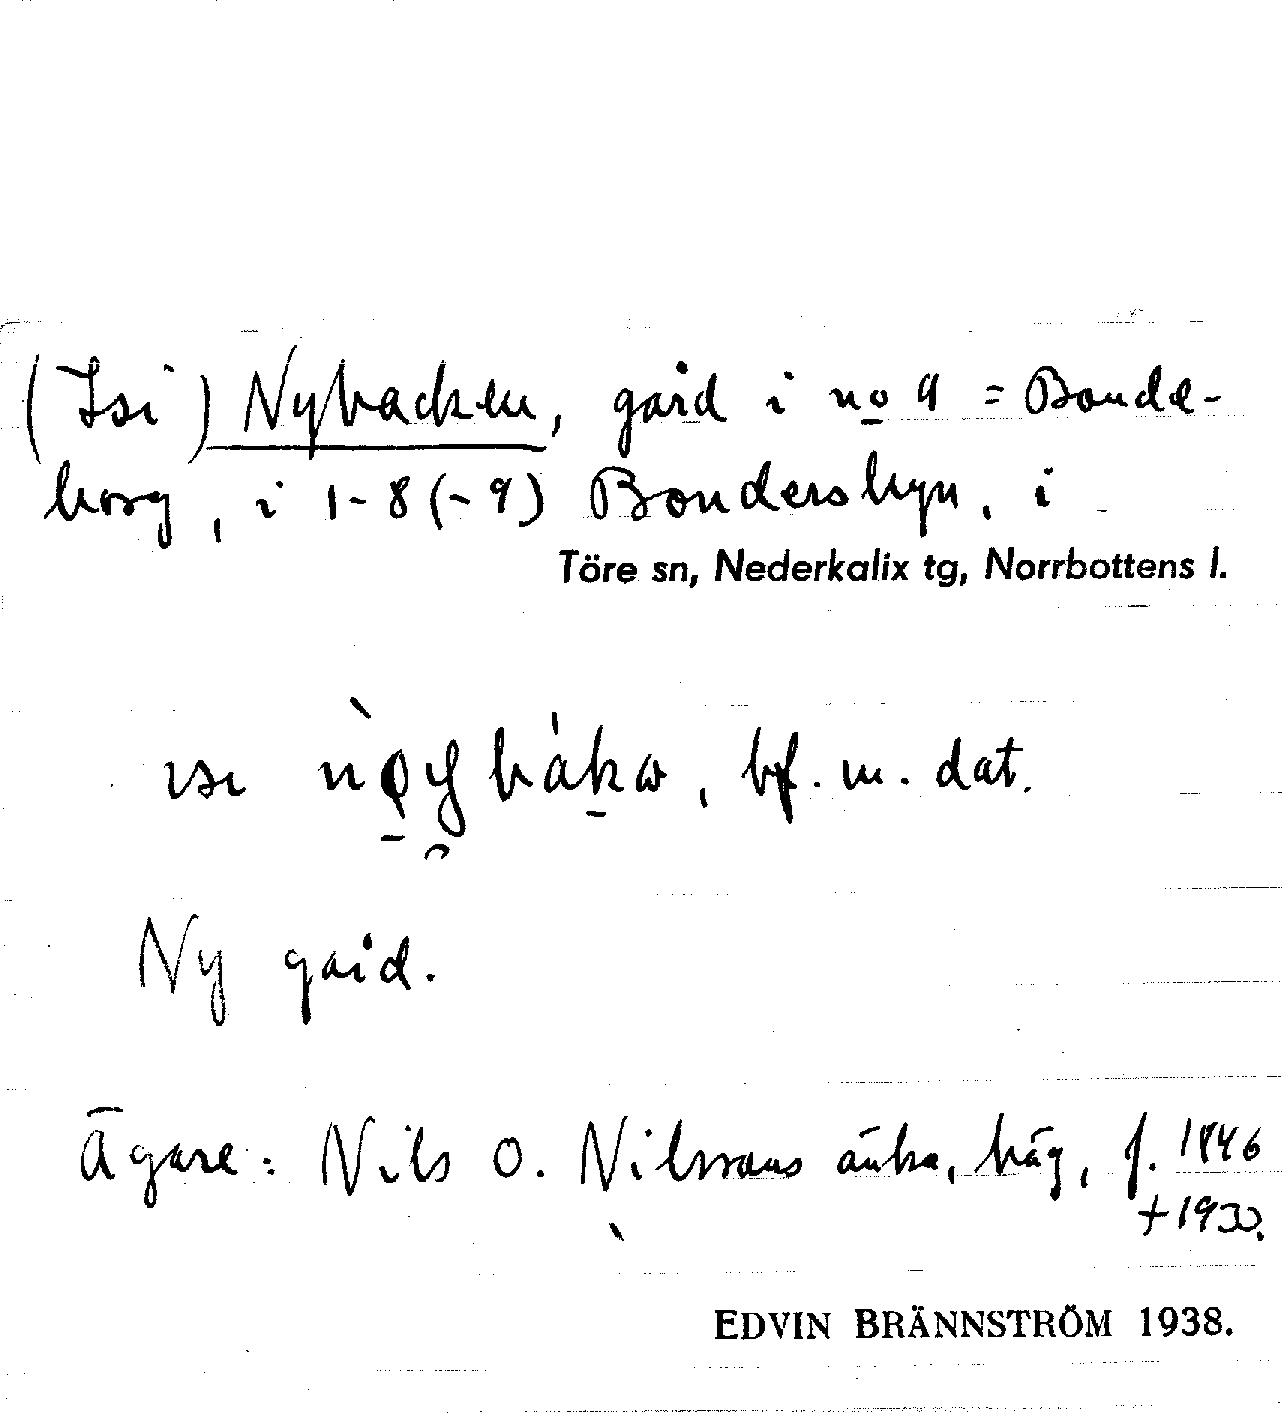 (Isi) Nybacken, gård i no 9 = Bonde-
borg, i 1-8 (-9) Bondersbyn, i
Töre sn, Nederkalix tg, Norrbottens l.
bf. m. dat.
Ny gård.
Ägare: Nils O. Nilssons änka, häg, f. 1846
+ 1930.
EDVIN BRÄNNSTRÖM 1938.